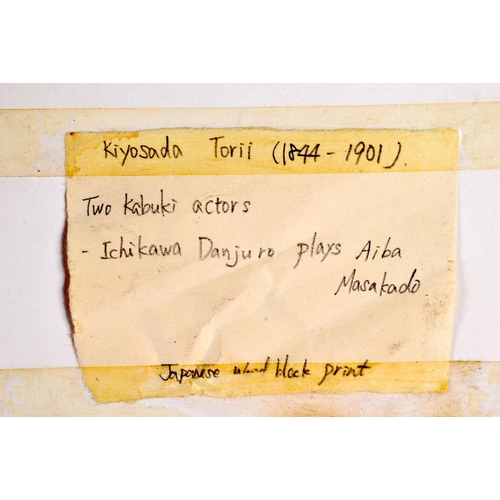 Kiyosada Torii (1844 - 1901).
Two Kabuki actors
- Ichikawa Danjuro plays Aiba
Masakado
Japanese wood block print